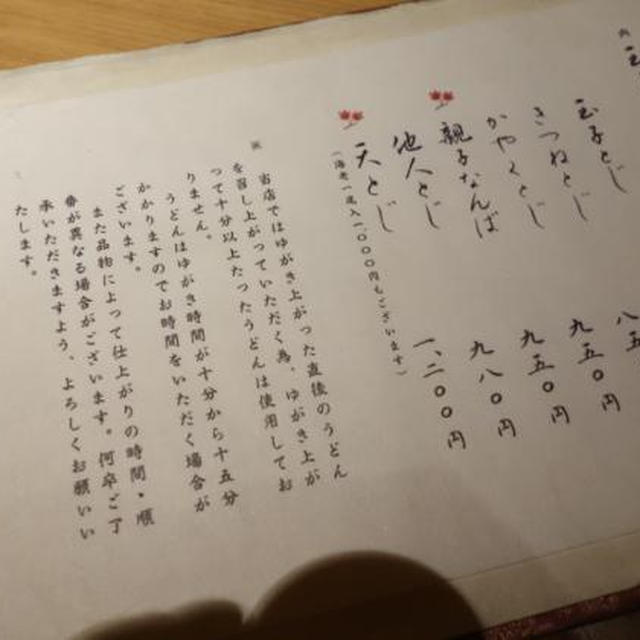 玉子とじ
きつねとじ 八五
かやくとじ 九五〇円
親子なんば 九五〇円
他人とじ 九八〇円
天とじ 一、二〇〇円
(海老一尾入一、〇〇〇円もございます)
当店ではゆがき上がった直後のうどん
を召し上がっていただく為、ゆがき上が
って十分以上たったうどんは使用してお
りません。
うどんはゆがき時間が十分から十五分
かかりますのでお時間をいただく場合が
ございます。
また品物によって仕上がりの時間・順
番が異なる場合がございます。何卒ご了
承いただきますよう、よろしくお願いい
たします。